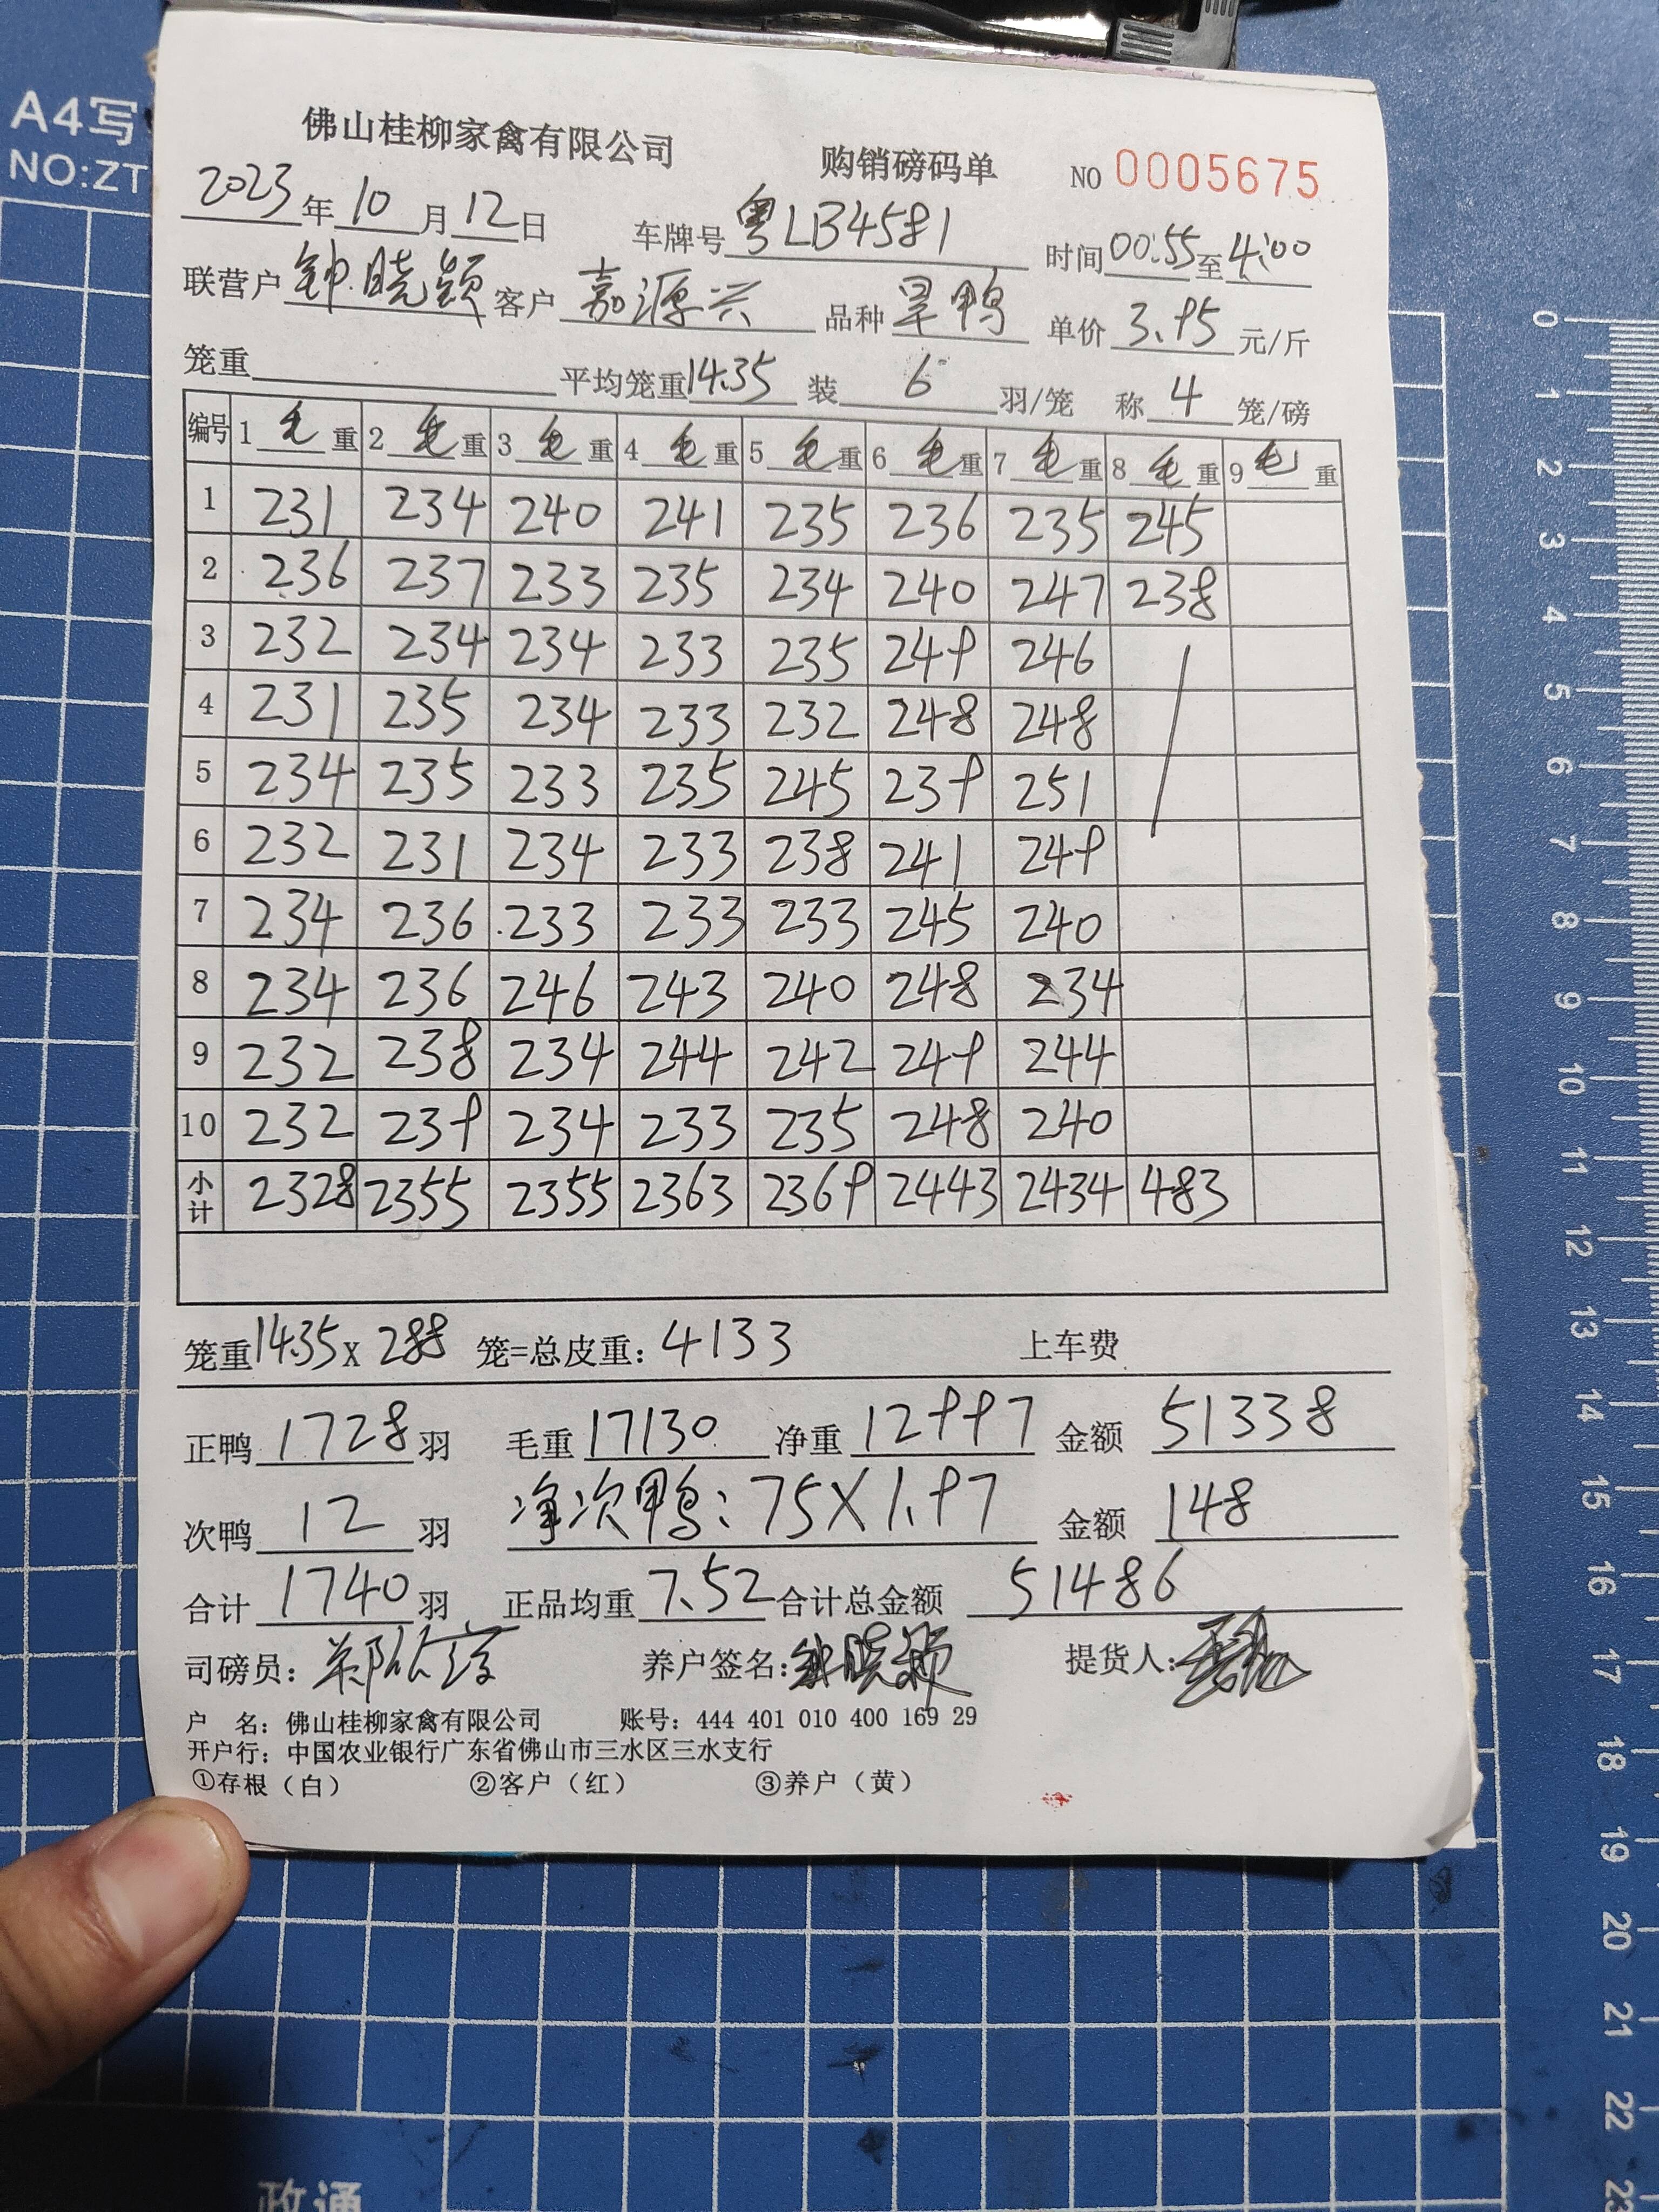 A4写
NO:ZT
佛山桂柳家禽有限公司 购销磅码单 NO 0005675
2023年10月12日 车牌号粤LB4581 时间00:55至4:00
联营户钟晓颖 客户嘉源兴 品种旱鸭 单价3.95元/斤
笼重 平均笼重14.35 装6羽/笼 称4笼/磅
编号 1毛重 2毛重 3毛重 4毛重 5毛重 6毛重 7毛重 8毛重 9毛重
1 231 234 240 241 235 236 235 245
2 236 237 233 235 234 240 247 238
3 232 234 234 233 235 249 246
4 231 235 234 233 232 248 248
5 234 235 233 235 245 239 251
6 232 231 234 233 238 241 249
7 234 236 233 233 233 245 240
8 234 236 246 243 240 248 234
9 232 238 234 244 242 249 244
10 232 239 234 233 235 248 240
小计 2328 2355 2355 2363 2369 2443 2434 483
笼重14.35X288 笼=总皮重:4133 上车费
正鸭1728羽 毛重17130 净重12997 金额51338
次鸭12羽 净次鸭:75X1.97 金额148
合计1740羽 正品均重7.52 合计总金额51486
司磅员: 养户签名:钟晓颖 提货人:
户 名: 佛山桂柳家禽有限公司 账号: 444 401 010 400 169 29
开户行: 中国农业银行广东省佛山市三水区三水支行
①存根(白) ②客户(红) ③养户(黄)
0
1
2
3
4
5
6
7
8
9
10
11
12
13
14
15
16
17
18
19
20
21
22
23
政通